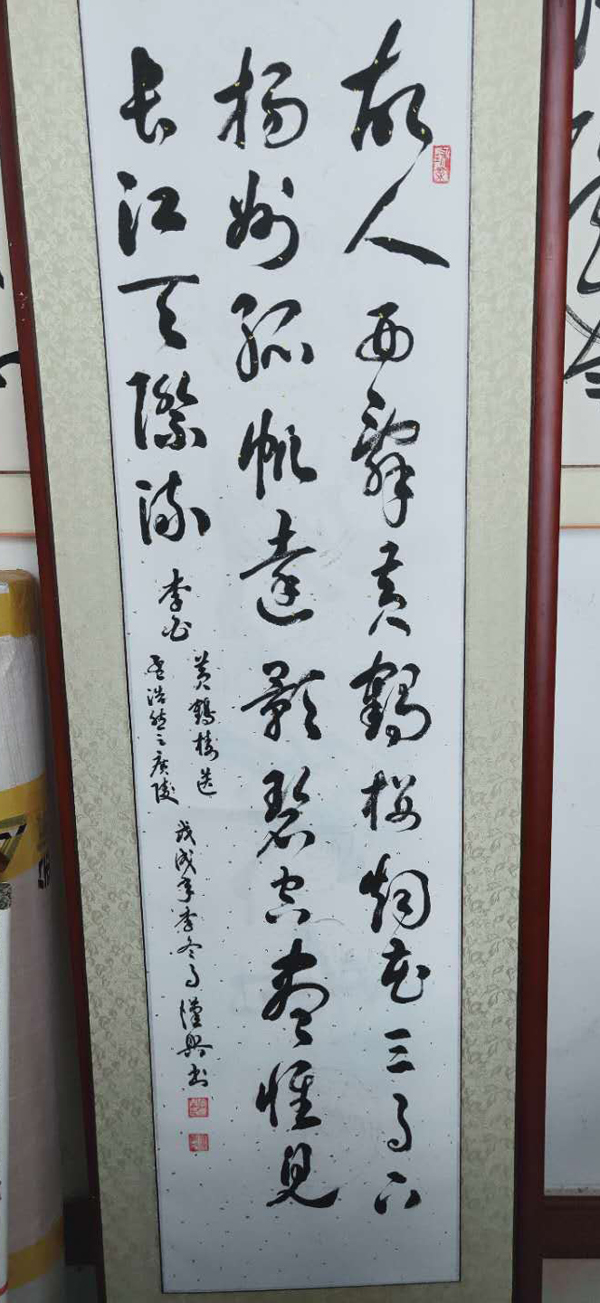 故人西辞黄鹤楼烟花三月下
扬州孤帆远影碧空尽惟见
长江天际流
李白
黄鹤楼送
孟浩然之广陵
戊戌年季冬月漢兴书